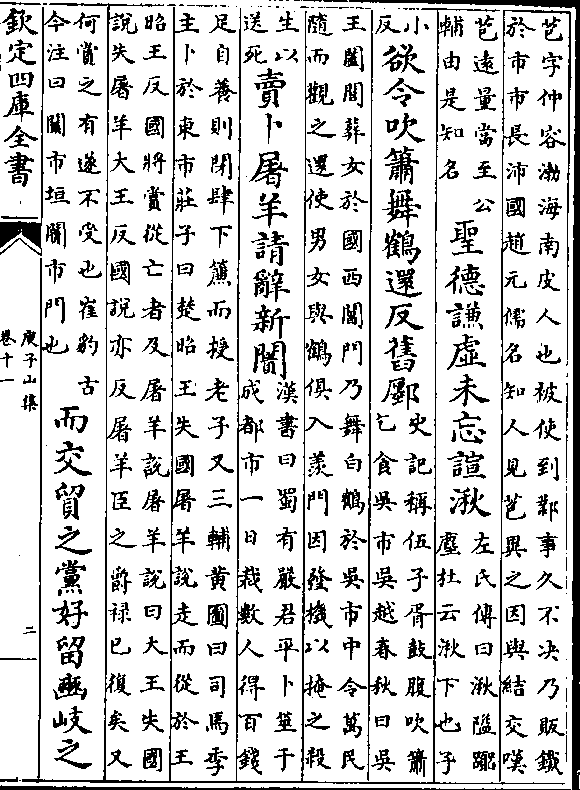 芑字仲容渤海南皮人也被使到鄴事久不决乃販鐵
於市市長沛國趙元儒名知人見芑異之因與結交嘆
芑遠量當至公
輔由是知名
聖德謙虚未忘諠湫
左氏傳曰湫隘踞
塵杜云湫下也子
小
反
欲令吹簫舞鶴還反舊鄽
史記稱伍子胥鼓腹吹簫
乞食吳市吳越春秋曰吳
王闔閭葬女於國西閶門乃舞白鶴於吳市中令萬民
隨而觀之還使男女與鶴俱入羨門因發機以掩之殺
生以
送死
賣卜屠羊請辭新闠
漢書曰蜀有嚴君平卜筮于
成都市一日裁數人得百錢
足自養則閉肆下簾而授老子又三輔黄圖曰司馬季
主卜於東市莊子曰楚昭王失國屠羊說走而從於王
昭王反國將賞從亡者及屠羊說屠羊說曰大王失國
說失屠羊大王反國說亦反屠羊臣之爵禄已復矣又
何賞之有遂不受也崔豹古
今注曰闤市垣闠市門也
而交貿之黨好留豳岐之
欽定四庫全書
庾子山集
卷十一
二